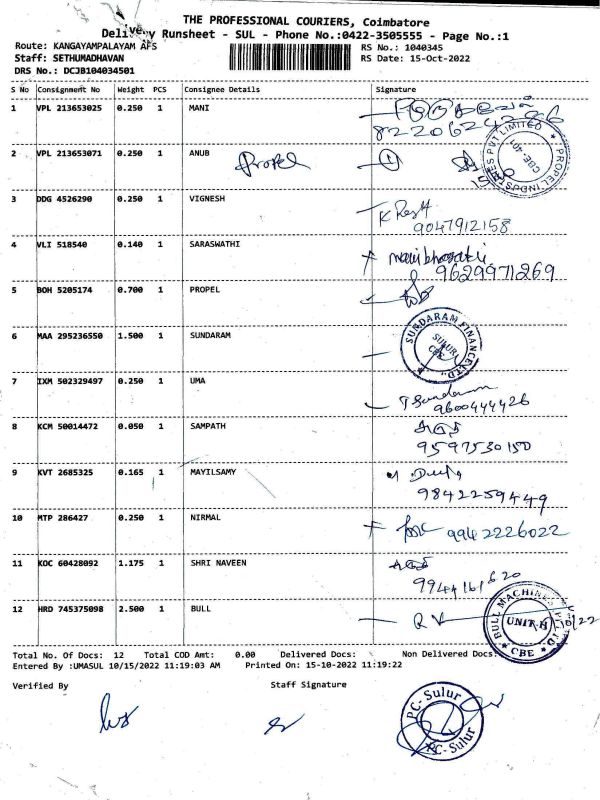 THE PROFESSIONAL COURIERS, Coimbatore
Delivery Runsheet - SUL - Phone No.:0422-3505555 - Page No.:1
Route: KANGAYAMPALAYAM AFS
RS No.: 1040345
Staff: SETHUMADHAVAN
RS Date: 15-Oct-2022
DRS No.: DCJB104034501
S No Consignment No Weight PCS Consignee Details Signature
1 VPL 213653025 0.250 1 MANI
8220624286
2 VPL 213653071 0.250 1 ANUB Propel
PROPEL INDUSTRIES PVT LIMITED
3 DDG 4526290 0.250 1 VIGNESH
9047912158
4 VLI 518540 0.140 1 SARASWATHI
9629971269
5 BOH 5205174 0.700 1 PROPEL
6 MAA 295236550 1.500 1 SUNDARAM
SUNDARAM FINANCE LTD.
SULUR
CBE
7 IXM 502329497 0.250 1 UMA
T Sundaram
9600444426
8 KCM 50014472 0.050 1 SAMPATH
9597530150
9 KVT 2685325 0.165 1 MAYILSAMY
9842259449
10 MTP 286427 0.250 1 NIRMAL
9942226022
11 KOC 60428092 1.175 1 SHRI NAVEEN
9944161620
12 HRD 745375098 2.500 1 BULL
BULL MACHINES P LTD
UNIT-II
CBE
Total No. Of Docs: 12 Total COD Amt: 0.00 Delivered Docs: Non Delivered Docs:
Entered By :UMASUL 10/15/2022 11:19:03 AM Printed On: 15-10-2022 11:19:22
Verified By Staff Signature
PC- Sulur
PC- Sulur